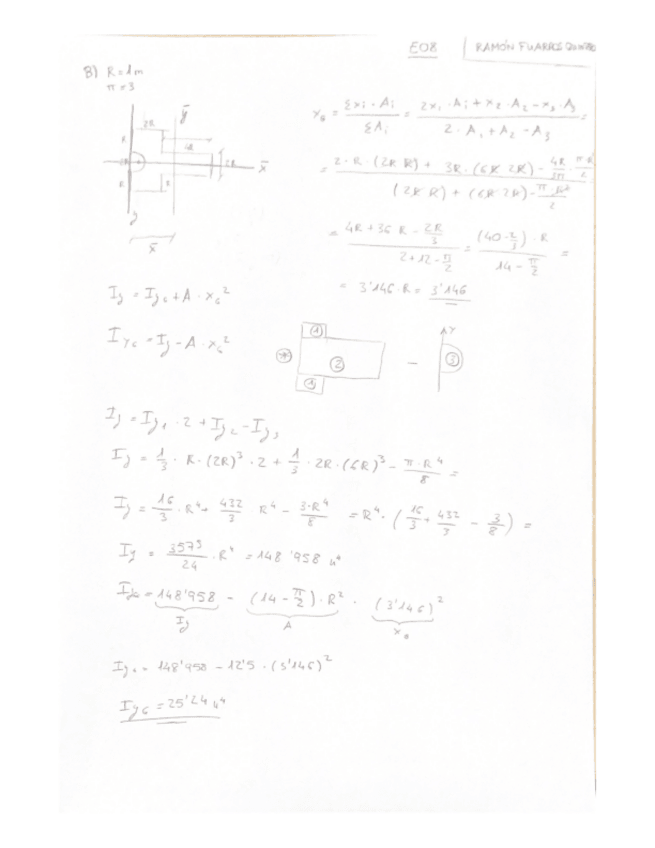 E08 RAMÓN FUARROS
B) R = 1m
π = 3
2R ȳ
R 4R
2R 2R x̄
R R
y
x̄
x_G = Σx_i · A_i / ΣA_i = 2x_1 · A_1 + x_2 · A_2 - x_3 · A_3 / 2 · A_1 + A_2 - A_3 =
= 2 · R · (2R R) + 3R · (6R 2R) - 4R/3π · π·R²/2 / (2R R) + (6R 2R) - π·R²/2
= 4R + 36R - 2R/3 / 2 + 12 - π/2 = (40 - 2/3) · R / 14 - π/2 =
= 3'146 · R = 3'146
I_y = I_yG + A · x_G²
I_yG = I_y - A · x_G²
* 1 2 1 - Y 3
I_y = I_y1 · 2 + I_y2 - I_y3
I_y = 1/3 · R · (2R)³ · 2 + 1/3 · 2R · (6R)³ - π·R⁴/8 =
I_y = 16/3 · R⁴ + 432/3 · R⁴ - 3·R⁴/8 = R⁴ · (16/3 + 432/3 - 3/8) =
I_y = 3575/24 · R⁴ = 148'958 u⁴
= 148'958 - (14 - π/2) · R² · (3'146)²
I_y A x_G
I_yG = 148'958 - 12'5 · (3'146)²
I_yG = 25'24 u⁴